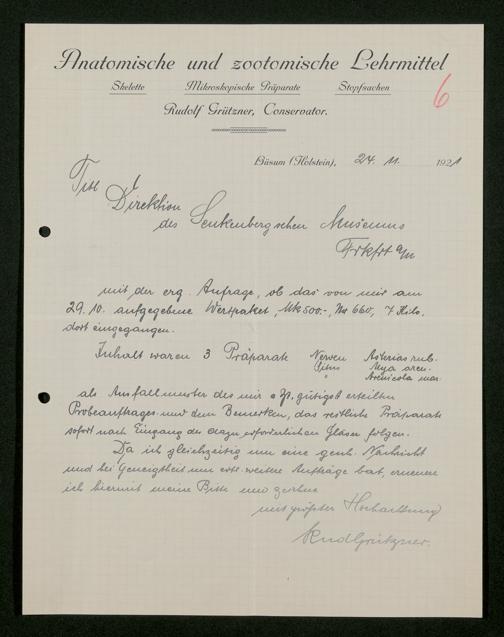 Anatomische und zootomische Lehrmittel
Skelette Mikroskopische Präparate Stopfsachen
6
Rudolf Grützner, Conservator.
Büsum (Holstein), 24. 11. 1921
Titl
Direktion
des Senkenbergschen Museums
Frkfrt a/m
mit der erg. Anfrage, ob das von mir am
29.10. aufgegebene Wertpaket, Mk 500.-, No 660, 7 Kilo,
dort eingegangen.
Inhalt waren 3 Präparate Nerven Asterias rub.
Situs Mya aren.
" Arenicola mar.
als Ausfallmuster des mir gütigst erteilten
Probeauftrages und dem Bemerken, das restliche Präparate
sofort nach Eingang der dazu erforderlichen Gläser folgen.
Da ich gleichzeitig um eine gesch. Nachricht
und bei Geneigtheit um evtl. weitere Aufträge bat, erneuere
ich hiermit meine Bitte und zeichne
mit größter Hochachtung
Rud Grützner.